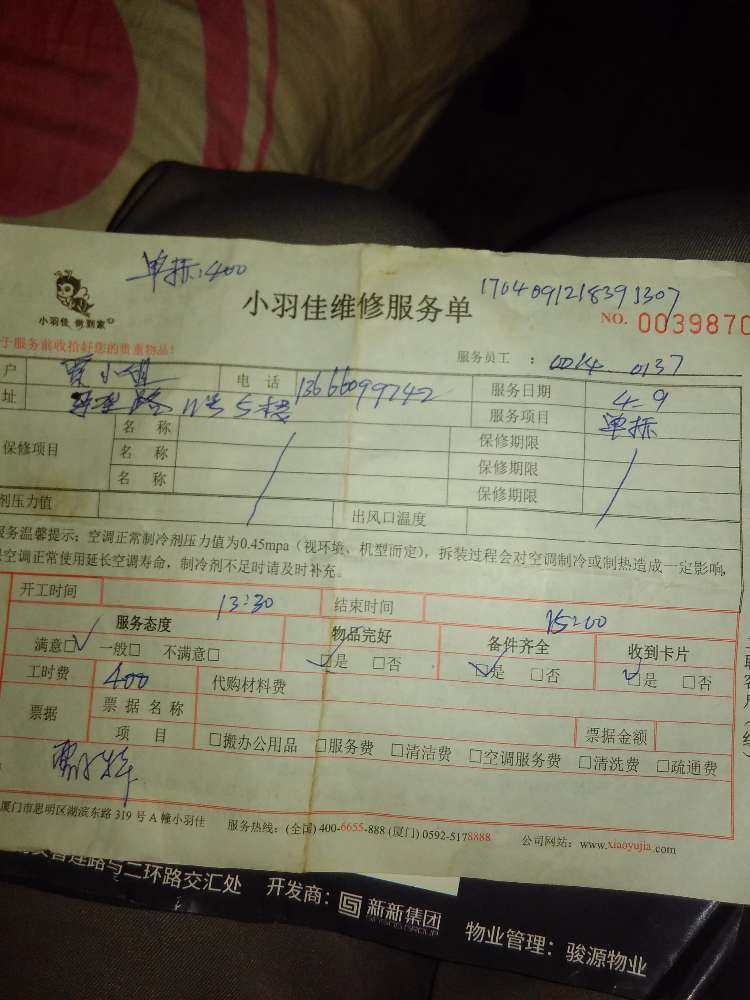 单拆:400
小羽佳 倚到家
小羽佳维修服务单
1704091218391307
NO. 0039870
于服务前收拾好您的贵重物品!
服务员工 : 0014 0137
户 电 话 13666099742 服务日期 4.9
址 11号5楼 服务项目 单拆
保修项目 名 称 保修期限
名 称 保修期限
名 称 保修期限
剂压力值 出风口温度
服务温馨提示: 空调正常制冷剂压力值为0.45mpa(视环境、机型而定),拆装过程会对空调制冷或制热造成一定影响,
空调正常使用延长空调寿命,制冷剂不足时请及时补充。
开工时间 13:30 结束时间 15:00
服务态度 物品完好 备件齐全 收到卡片
满意☑ 一般□ 不满意□ ☑是 □否 ☑是 □否 ☑是 □否
工时费 400 代购材料费
票据 票 据 名 称 票据金额
项 目 □搬办公用品 □服务费 □清洁费 □空调服务费 □清洗费 □疏通费
厦门市思明区湖滨东路 319 号 A 幢小羽佳 服务热线: (全国) 400-6655-888 (厦门) 0592-5178888 公司网站: www.xiaoyujia.com
路与二环路交汇处 开发商: 新新集团 物业管理: 骏源物业